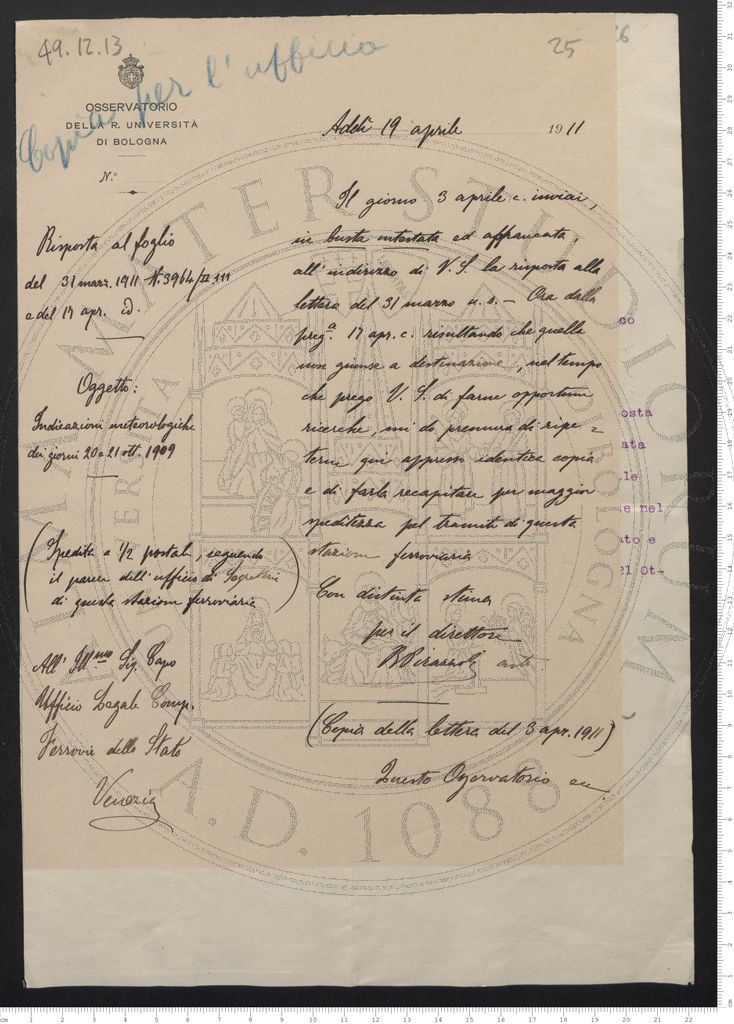 49.12.13
25
26
Copia per l'ufficio
OSSERVATORIO
DELLA R. UNIVERSITÀ
DI BOLOGNA
N.°
Addì 19 aprile 1911
Risposta al foglio
del 31 marz. 1911 N. 3964/II.111
e del 17 apr. id.
Oggetto:
Indicazioni meteorologiche
dei giorni 20 e 21 ott. 1909
(Spedita a 1/2 postale, seguendo
il parere dell'ufficio di Segreteria
di questa stazione ferroviaria)
All' Ill.mo Sig. Capo
Ufficio Legale Comp.
Ferrovie dello Stato
Venezia
Il giorno 3 aprile c. inviai,
in busta intestata ed affrancata,
all'indirizzo di V. S. la risposta alla
lettera del 31 marzo u. s. – Ora dalla
preg.a 17 apr. c. risultando che quella
non giunse a destinazione, nel tempo
che prego V. S. di farne opportune
ricerche, mi do premura di ripe=
terne qui appresso identica copia
e di farla recapitare per maggior
speditezza pel tramite di questa
stazione ferroviaria
Con distinta stima
per il direttore
(Copia della lettera del 3 apr. 1911)
Questo Osservatorio
co
osta
ata
le
e nel
ato e
el Ot-
ALMA MATER STUDIORUM
UNIVERSITA
BOLOGNA
A.D. 1088